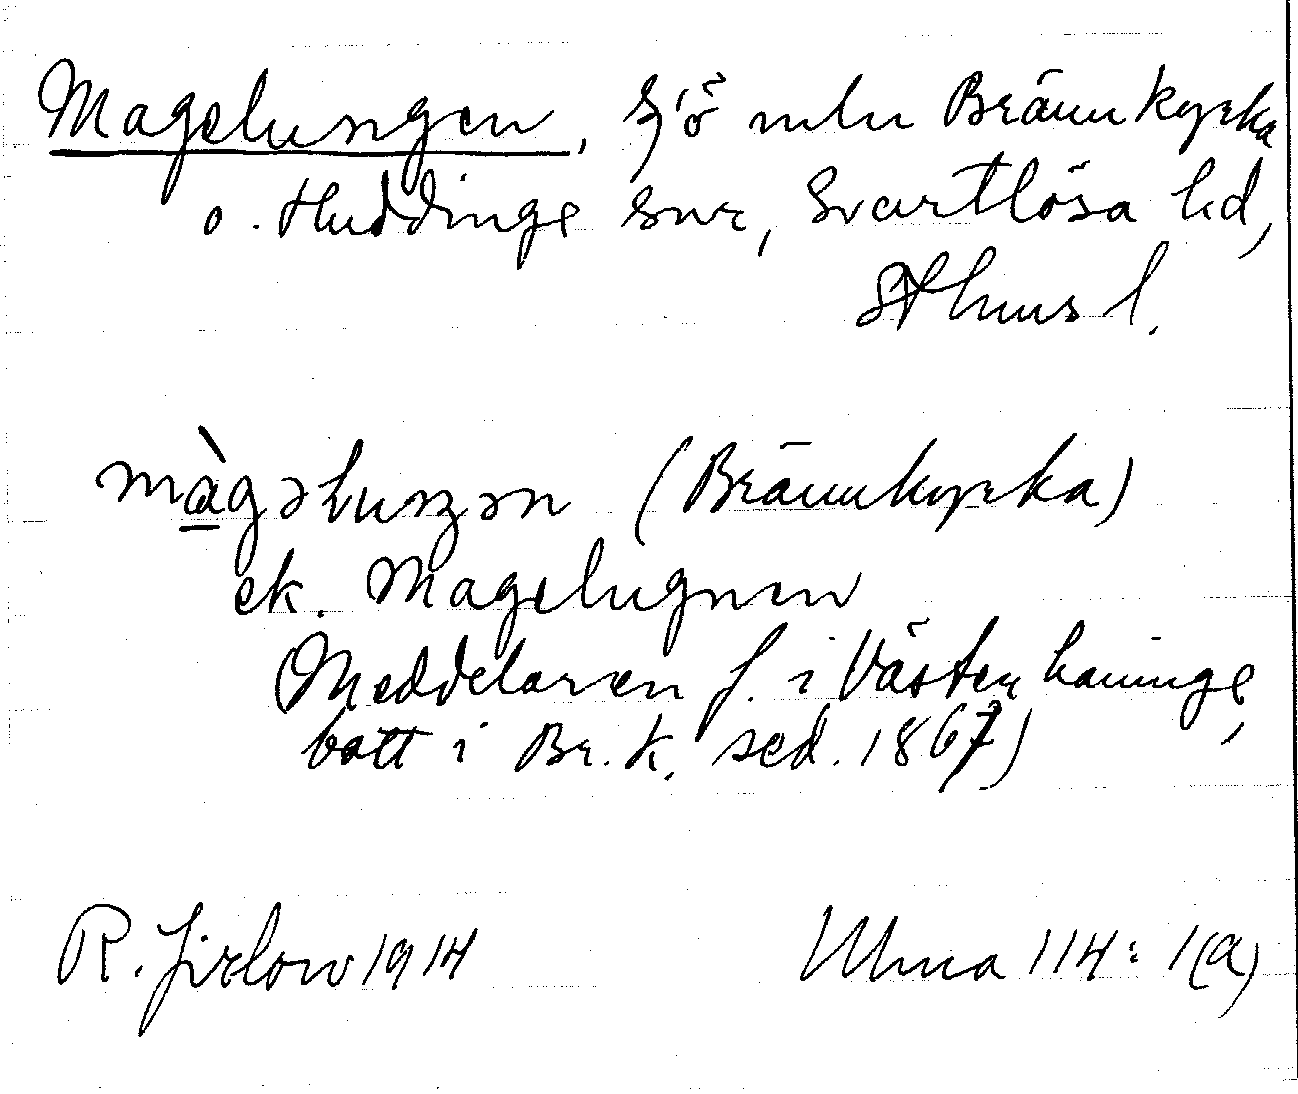 Magelungen, sjö mln Brännkyrka
o. Huddinge snr, Svartlösa hd,
Sthms l.
màgəluŋən (Brännkyrka)
ek. Magelugnen
Meddelaren f. i Västerhaninge,
bott i Br.k. sed. 1867)
R. Jirlow 1914
Uma 114:1(a)